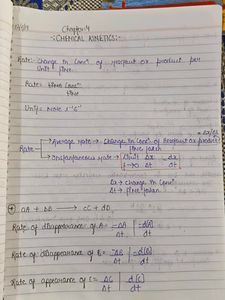 Chapter:4
:CHEMICAL KINETICS:-
Rate: Change in Conc^n of reactant or product per
Unit time
Rate: Conc^n
time
Unit:- Mole L^-1 S^-1
Rate → Average rate → Change in Conc^n of Reactant or product
time taken
→ Instantaneous rate → Limit Δx dx
t→0 Δt dt
Δx → Change in Conc^n
Δt → time taken
aA + bB → cC + dD
Rate of disappearance of A = -ΔA | -d(A)
Δt | dt
Rate of disappearance of B = -ΔB | -d(B)
Δt | dt
Rate of appearance of C = ΔC | d(C)
Δt | dt